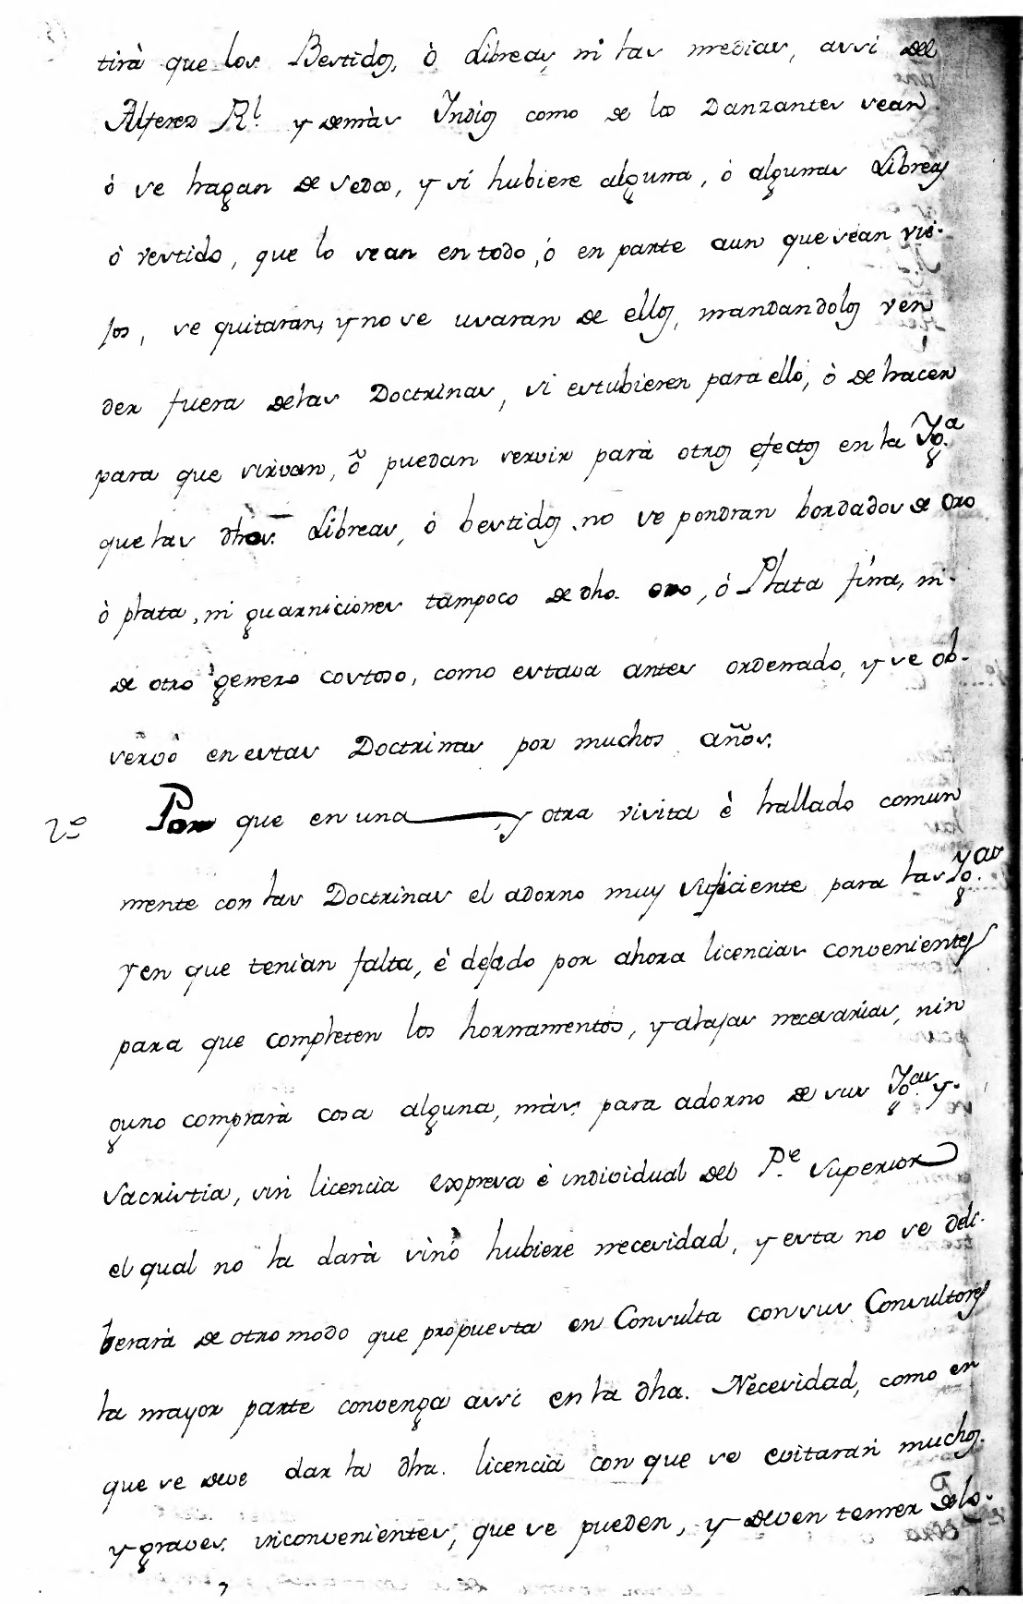 tirà que los Bestidos, ò Libreas, ni las medias, assi del
Alferes Rl. y demàs Indios como de los Danzantes sean
ò se hagan de seda, y si hubiere alguna, ò algunas Libreas
ò vestido, que lo sean en todo, ò en parte aun que sean vie-
jos, se quitaran, y no se usaran de ellos, mandandolos ven
der fuera delas Doctrinas, si estubieren para ello, ò de hacer
para que sirvan, ò puedan servir para otros efectos en la Yga.
que las dhas. Libreas, ò bestidos no se pondran bordados de oro
ò plata, ni guarniciones tampoco de dho. oro, ò Plata fina, ni-
de otro genero costoso, como estava antes ordenado, y se ob-
servò en estas Doctrinas por muchos años.
2º Por que en una y otra visita è hallado comun
mente con las Doctrinas el adorno muy suficiente para las Ygas.
y en que tenian falta, è dejado por ahora licencias convenientes
para que completen los hornamentos, y alajas necesarias, nin
guno comprarà cosa alguna, màs para adorno de sus Ygas. y-
sacristia, sin licencia expresa è individual del Pe. Superior
el qual no la darà sino hubiere necesidad, y esta no se deli-
berarà de otro modo que propuesta en Consulta con sus Consultores
la mayor parte convenga assi en la dha. Necesidad, como en
que se deve dar la dha. licencia con que se evitaran muchos
y graves inconvenientes, que se pueden, y deven temer Delo-